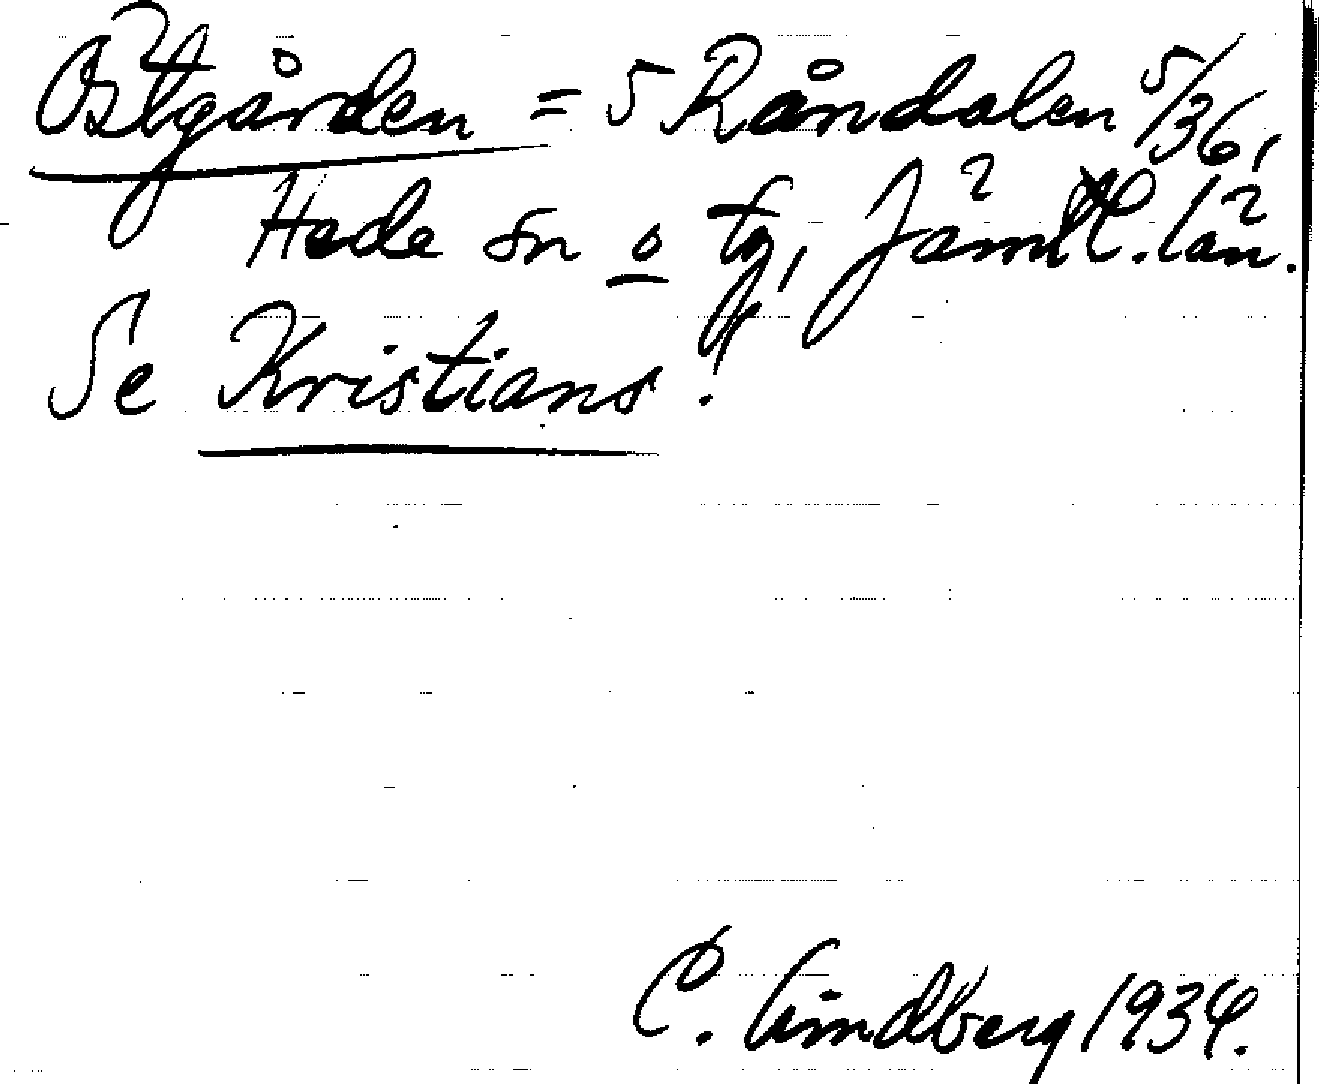 Östgården = S Råndalen 5/36,
Hede sn o tg, Jämtl. län.
Se Kristians!
C. Lindberg 1934.